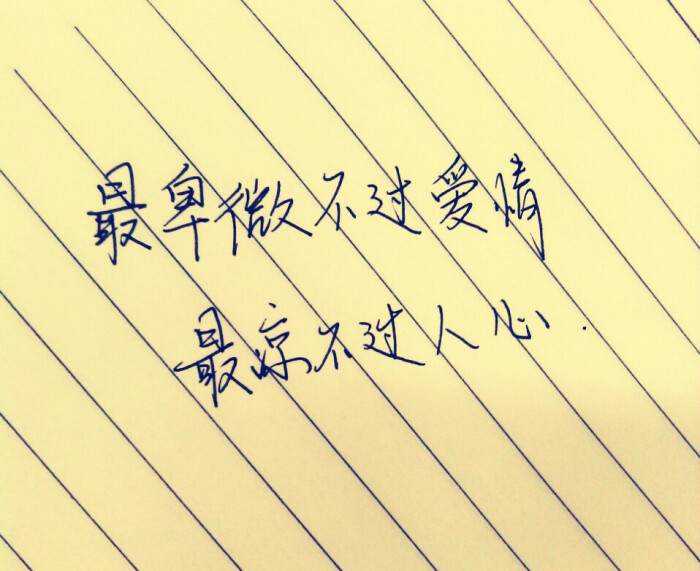 最卑微不过爱情
最凉不过人心.